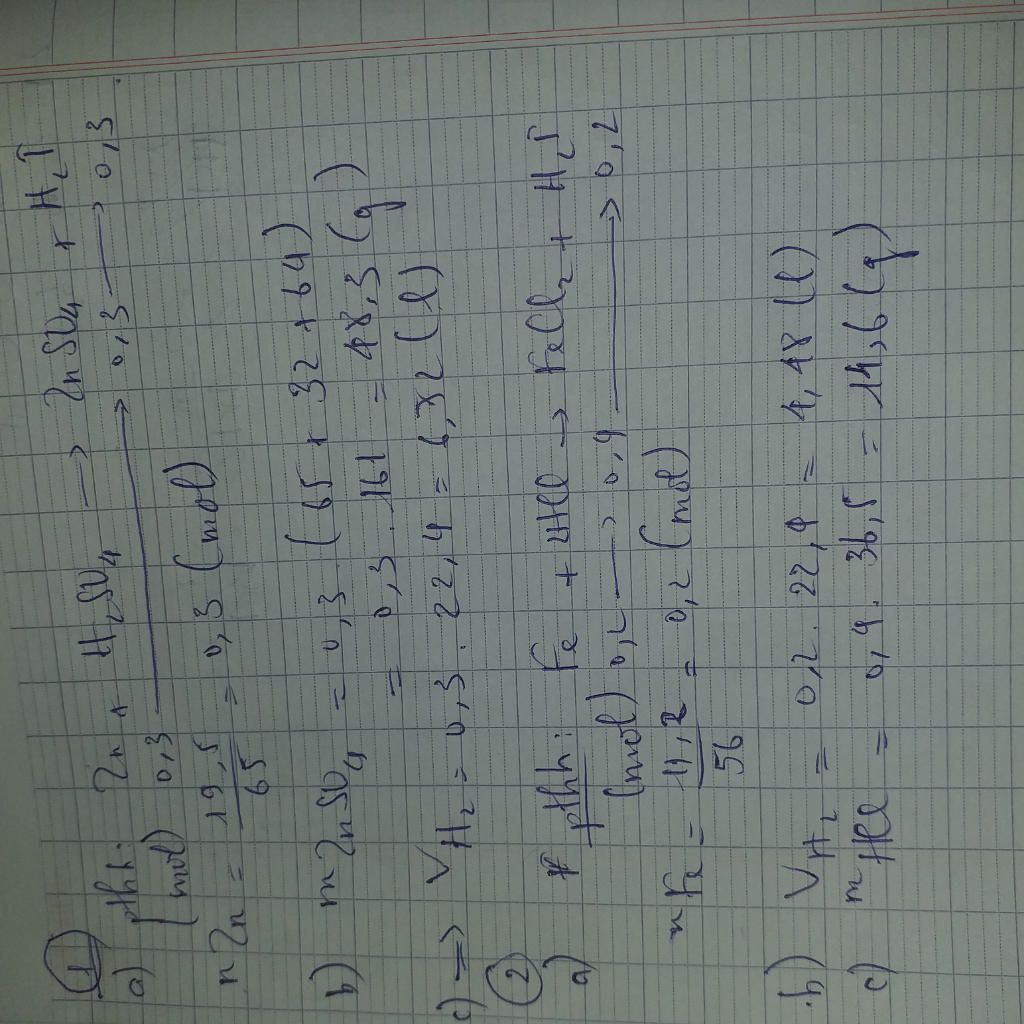 1
a) pthh: Zn + H2SO4 → ZnSO4 + H2↑
(mol) 0,3 → 0,3 → 0,3
nZn = 19,5/65 = 0,3 (mol)
b) mZnSO4 = 0,3 (65 + 32 + 64)
= 0,3 . 161 = 48,3 (g)
c) ⇒ VH2 = 0,3 . 22,4 = 6,72 (l)
2
a) * pthh: Fe + 2HCl → FeCl2 + H2↑
(mol) 0,2 → 0,4 → 0,2
nFe = 11,2/56 = 0,2 (mol)
b) VH2 = 0,2 . 22,4 = 4,48 (l)
c) mHCl = 0,4 . 36,5 = 14,6 (g)